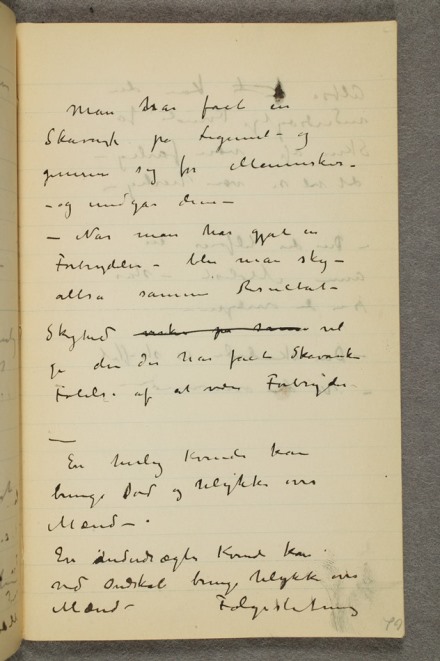 Man har faet en
Skavank på Legemet – og
gemmer sig for Mennesker –
– og undgår dem –
– Når man har gjort en
Forbrydelse – blir man sky –
altså samme Resultat –
Skyhed vil
gi den der har faet Skavanke
Følelse af at være Forbryder –
En Kvinde kan
bringe Død og Ulykke over
Mænd – .
En Kvinde kan
ved bringe Ulykke over
Mænd – Følgeslutning